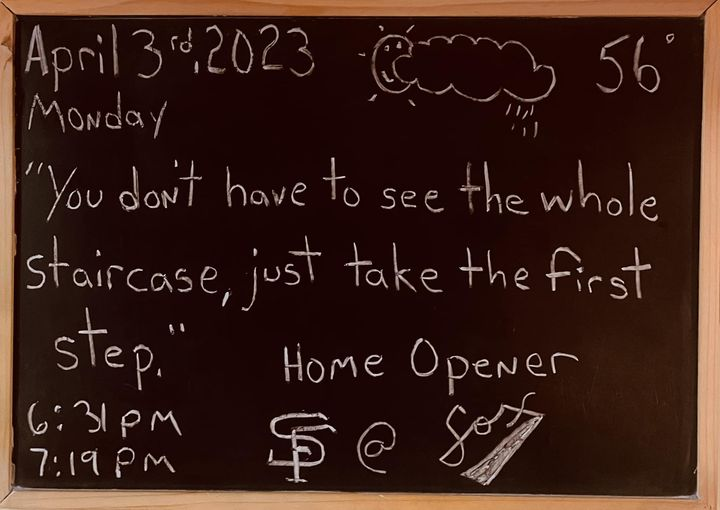 April 3rd, 2023 56°
Monday
"You don't have to see the whole
staircase, just take the first
step."
Home Opener
6:31 PM
7:19 PM
SF @ Sox